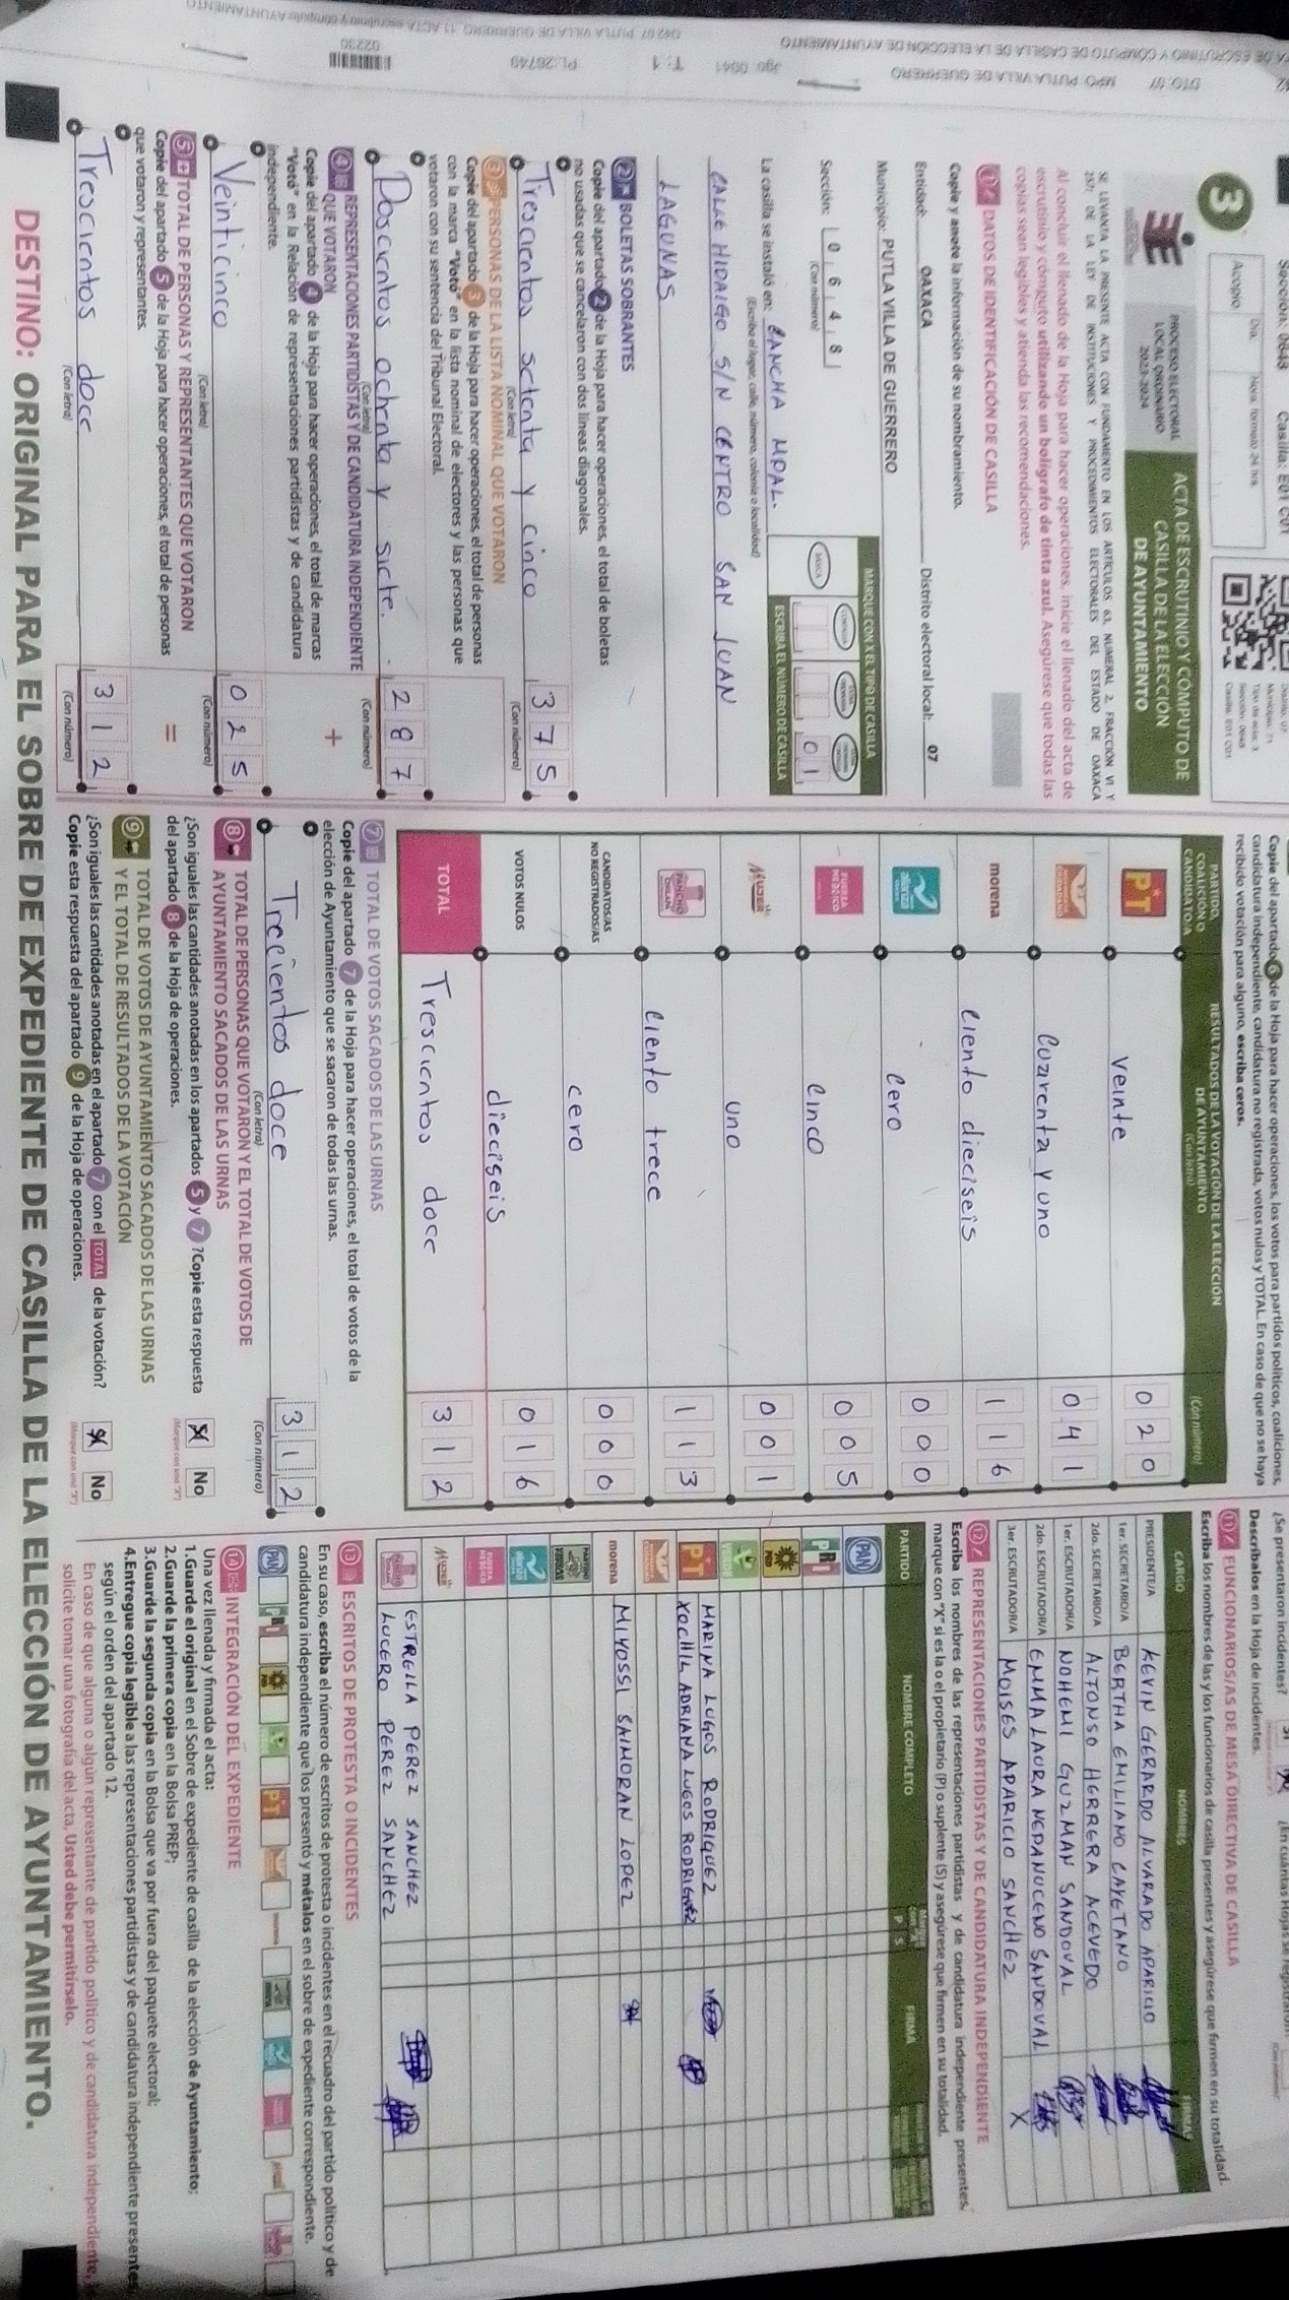 Sección: 0648 Casilla: E01 C01
Día
Hora, formato 24 hrs.
Acopio
3
PROCESO ELECTORAL
LOCAL ORDINARIO
2023-2024
ACTA DE ESCRUTINIO Y CÓMPUTO DE
CASILLA DE LA ELECCIÓN
DE AYUNTAMIENTO
SE LEVANTA LA PRESENTE ACTA CON FUNDAMENTO EN LOS ARTÍCULOS 63, NUMERAL 2, FRACCIÓN VI Y
257; DE LA LEY DE INSTITUCIONES Y PROCEDIMIENTOS ELECTORALES DEL ESTADO DE OAXACA
Al concluir el llenado de la Hoja para hacer operaciones, inicie el llenado del acta de
escrutinio y cómputo utilizando un bolígrafo de tinta azul. Asegúrese que todas las
copias sean legibles y atienda las recomendaciones.
1 DATOS DE IDENTIFICACIÓN DE CASILLA
Copie y anote la información de su nombramiento.
Entidad: OAXACA Distrito electoral local: 07
Municipio: PUTLA VILLA DE GUERRERO
Sección: 0 6 4 8
(Con número)
MARQUE CON X EL TIPO DE CASILLA
BÁSICA
0 1
ESCRIBA EL NÚMERO DE CASILLA
La casilla se instaló en: CANCHA MPAL.
(Escriba el lugar, calle, número, colonia o localidad)
CALLE HIDALGO S/N CENTRO SAN JUAN
LAGUNAS
2 BOLETAS SOBRANTES
Copie del apartado 2 de la Hoja para hacer operaciones, el total de boletas
no usadas que se cancelaron con dos líneas diagonales.
Trescientos setenta y cinco 3 7 5
(Con letra) (Con número)
3 PERSONAS DE LA LISTA NOMINAL QUE VOTARON
Copie del apartado 3 de la Hoja para hacer operaciones, el total de personas
con la marca "Votó" en la lista nominal de electores y las personas que
votaron con su sentencia del Tribunal Electoral.
Doscientos ochenta y siete. 2 8 7
(Con letra) (Con número)
4 REPRESENTACIONES PARTIDISTAS Y DE CANDIDATURA INDEPENDIENTE
QUE VOTARON
Copie del apartado 4 de la Hoja para hacer operaciones, el total de marcas
"Votó" en la Relación de representaciones partidistas y de candidatura
independiente.
+
Veinticinco 0 2 5
(Con letra) (Con número)
5 TOTAL DE PERSONAS Y REPRESENTANTES QUE VOTARON
Copie del apartado 5 de la Hoja para hacer operaciones, el total de personas
que votaron y representantes.
=
Trescientos doce 3 1 2
(Con letra) (Con número)
Copie del apartado 6 de la Hoja para hacer operaciones, los votos para partidos políticos, coaliciones,
candidatura independiente, candidatura no registrada, votos nulos y TOTAL. En caso de que no se haya
recibido votación para alguno, escriba ceros.
PARTIDO,
COALICIÓN O
CANDIDATO/A
RESULTADOS DE LA VOTACIÓN DE LA ELECCIÓN
DE AYUNTAMIENTO
(Con letra) (Con número)
PT veinte 0 2 0
Cuarenta y uno 0 4 1
morena Ciento dieciseis 1 1 6
alianza Cero 0 0 0
FUERZA MÉXICO Cinco 0 0 5
MUJER uno 0 0 1
PANCHO CHILAPA Ciento trece 1 1 3
CANDIDATOS/AS
NO REGISTRADOS/AS cero 0 0 0
VOTOS NULOS dieciseis 0 1 6
TOTAL Trescientos doce 3 1 2
7 TOTAL DE VOTOS SACADOS DE LAS URNAS
Copie del apartado 7 de la Hoja para hacer operaciones, el total de votos de la
elección de Ayuntamiento que se sacaron de todas las urnas.
Trecientos doce 3 1 2
(Con letra) (Con número)
8 TOTAL DE PERSONAS QUE VOTARON Y EL TOTAL DE VOTOS DE
AYUNTAMIENTO SACADOS DE LAS URNAS
¿Son iguales las cantidades anotadas en los apartados 5 y 7 ? Copie esta respuesta
del apartado 8 de la Hoja de operaciones.
Sí No
9 TOTAL DE VOTOS DE AYUNTAMIENTO SACADOS DE LAS URNAS
Y EL TOTAL DE RESULTADOS DE LA VOTACIÓN
¿Son iguales las cantidades anotadas en el apartado 7 con el TOTAL de la votación?
Copie esta respuesta del apartado 9 de la Hoja de operaciones.
Sí No
¿Se presentaron incidentes?
Descríbalos en la Hoja de incidentes.
11 FUNCIONARIOS/AS DE MESA DIRECTIVA DE CASILLA
Escriba los nombres de las y los funcionarios de casilla presentes y asegúrese que firmen en su totalidad.
CARGO NOMBRES FIRMAS
PRESIDENTE/A KEVIN GERARDO ALVARADO APARICIO
1er. SECRETARIO/A BERTHA EMILIANO CAYETANO
2do. SECRETARIO/A ALFONSO HERRERA ACEVEDO
1er. ESCRUTADOR/A NOHEMI GUZMAN SANDOVAL
2do. ESCRUTADOR/A EMMA LAURA NEPANUCENO SANDOVAL
3er. ESCRUTADOR/A MOISES APARICIO SANCHEZ X
12 REPRESENTACIONES PARTIDISTAS Y DE CANDIDATURA INDEPENDIENTE
Escriba los nombres de las representaciones partidistas y de candidatura independiente presentes,
marque con "X" si es la o el propietario (P) o suplente (S) y asegúrese que firmen en su totalidad.
PARTIDO NOMBRE COMPLETO P S FIRMA
PAN
PRI
PRD
VERDE
PT MARINA LUGOS RODRIGUEZ
XOCHIL ADRIANA LUGOS RODRIGUEZ
morena MIYOSSI SAIMORAN LOPEZ
MUJER
ESTRELLA PEREZ SANCHEZ
LUCERO PEREZ SANCHEZ
13 ESCRITOS DE PROTESTA O INCIDENTES
En su caso, escriba el número de escritos de protesta o incidentes en el recuadro del partido político y de
candidatura independiente que los presentó y métalos en el sobre de expediente correspondiente.
14 INTEGRACIÓN DEL EXPEDIENTE
Una vez llenada y firmada el acta:
1.Guarde el original en el Sobre de expediente de casilla de la elección de Ayuntamiento;
2.Guarde la primera copia en la Bolsa PREP;
3.Guarde la segunda copia en la Bolsa que va por fuera del paquete electoral;
4.Entregue copia legible a las representaciones partidistas y de candidatura independiente presentes
según el orden del apartado 12.
En caso de que alguna o algún representante de partido político y de candidatura independiente,
solicite tomar una fotografía del acta, Usted debe permitírselo.
DESTINO: ORIGINAL PARA EL SOBRE DE EXPEDIENTE DE CASILLA DE LA ELECCIÓN DE AYUNTAMIENTO.
DE ESCRUTINIO Y CÓMPUTO DE CASILLA DE LA ELECCIÓN DE AYUNTAMIENTO
DTO: 07 MPO: PUTLA VILLA DE GUERRERO
T: 1
PL: 26749
02230